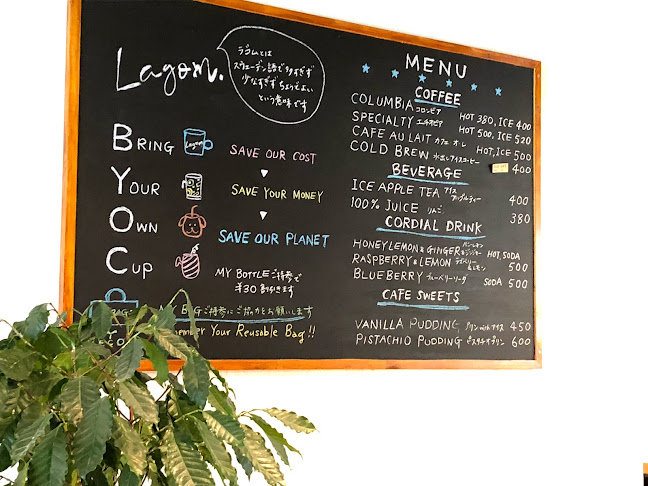 Lagom.
ラゴムとは
スウェーデン語で多すぎず
少なすぎずちょうどよい
という意味です
BRING
Lagom
SAVE OUR COST
YOUR
SAVE YOUR MONEY
OWN
SAVE OUR PLANET
CUP
MY BOTTLEご持参で
¥30割引きます
BAG
MY BAGご持参にご協力をお願いします
Remember Your Reusable Bag!!
MENU
COFFEE
COLUMBIA コロンビア HOT 380, ICE 400
SPECIALTY エチオピア HOT 500, ICE 520
CAFE AU LAIT カフェオレ HOT, ICE 500
COLD BREW 水出しアイスコーヒー 400
BEVERAGE
ICE APPLE TEA アイスアップルティー 400
100% JUICE りんご 380
CORDIAL DRINK
HONEY LEMON & GINGER ハニーレモン&ジンジャー HOT, SODA
RASPBERRY & LEMON ラズベリー&レモン 500
BLUEBERRY ブルーベリーソーダ SODA 500
CAFE SWEETS
VANILLA PUDDING プリン with アイス 450
PISTACHIO PUDDING ピスタチオプリン 600